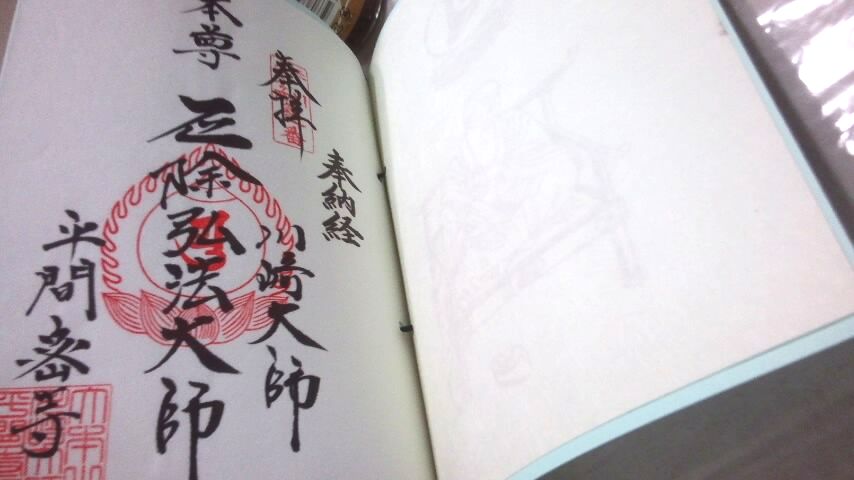 奉拝
奉納経
川崎大師
本尊
厄除弘法大師
平間密寺